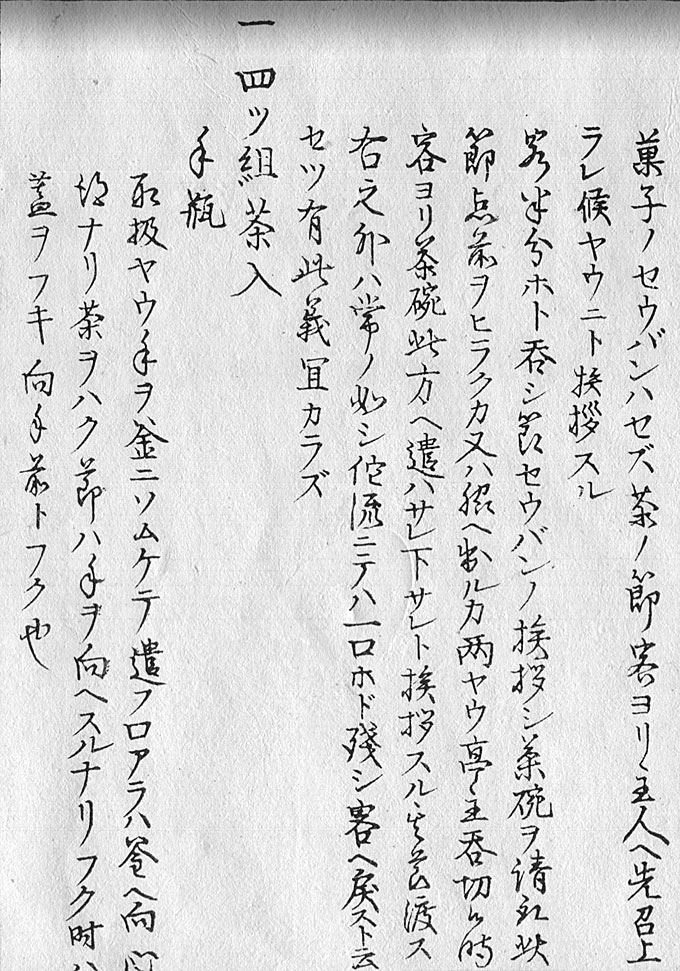 菓子ノセウバンハセズ茶ノ節客ヨリ主人ヘ先召上
ラレ候ヤウニト挨拶スル
客半分ホト呑シ節セウバンノ挨拶シ茶碗ヲ請取此
節点前ヲヒラクカ又ハ勝ヘ出ルカ両ヤウ亭主呑切候時
客ヨリ茶碗此方ヘ遣ハサレ下サレト挨拶スル其節渡ス
右之外ハ常ノ如シ他流ニテハ一口ホド殘シ客ヘ戻スト云
セツ有此義冝カラズ
一四ツ組茶入
手瓶
取扱ヤウ手ヲ釜ニソムケテ遣フ口アラハ釜ヘ向
ナリ茶ヲハク節ハ手ヲ向ヘスルナリフク時ハ
蓋ヲフキ向手前トフク也